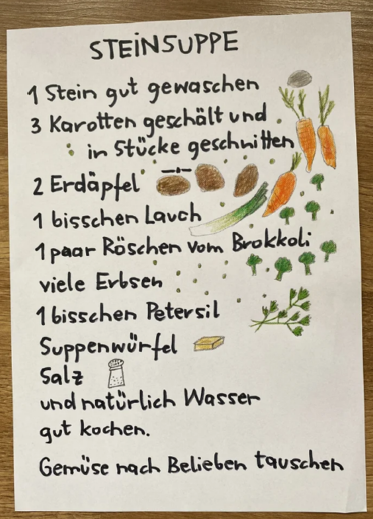 STEINSUPPE
1 Stein gut gewaschen
3 Karotten geschält und
in Stücke geschnitten
2 Erdäpfel
1 bisschen Lauch
1 paar Röschen vom Brokkoli
viele Erbsen
1 bisschen Petersil
Suppenwürfel
Salz
und natürlich Wasser
gut kochen.
Gemüse nach Belieben tauschen